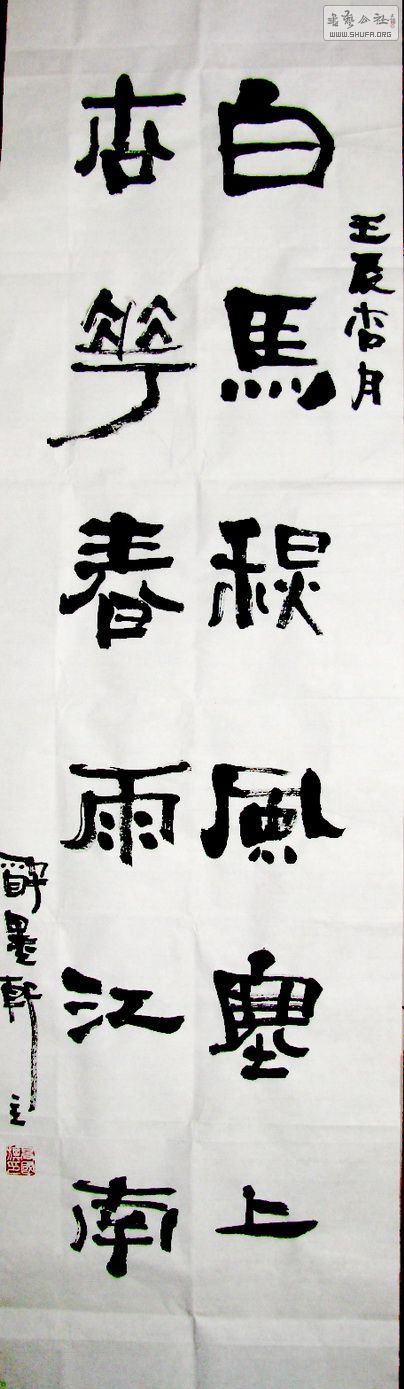 书艺公社
WWW.SHUFA.ORG
壬辰杏月
白馬秋風塞上
杏華春雨江南
醉墨軒主